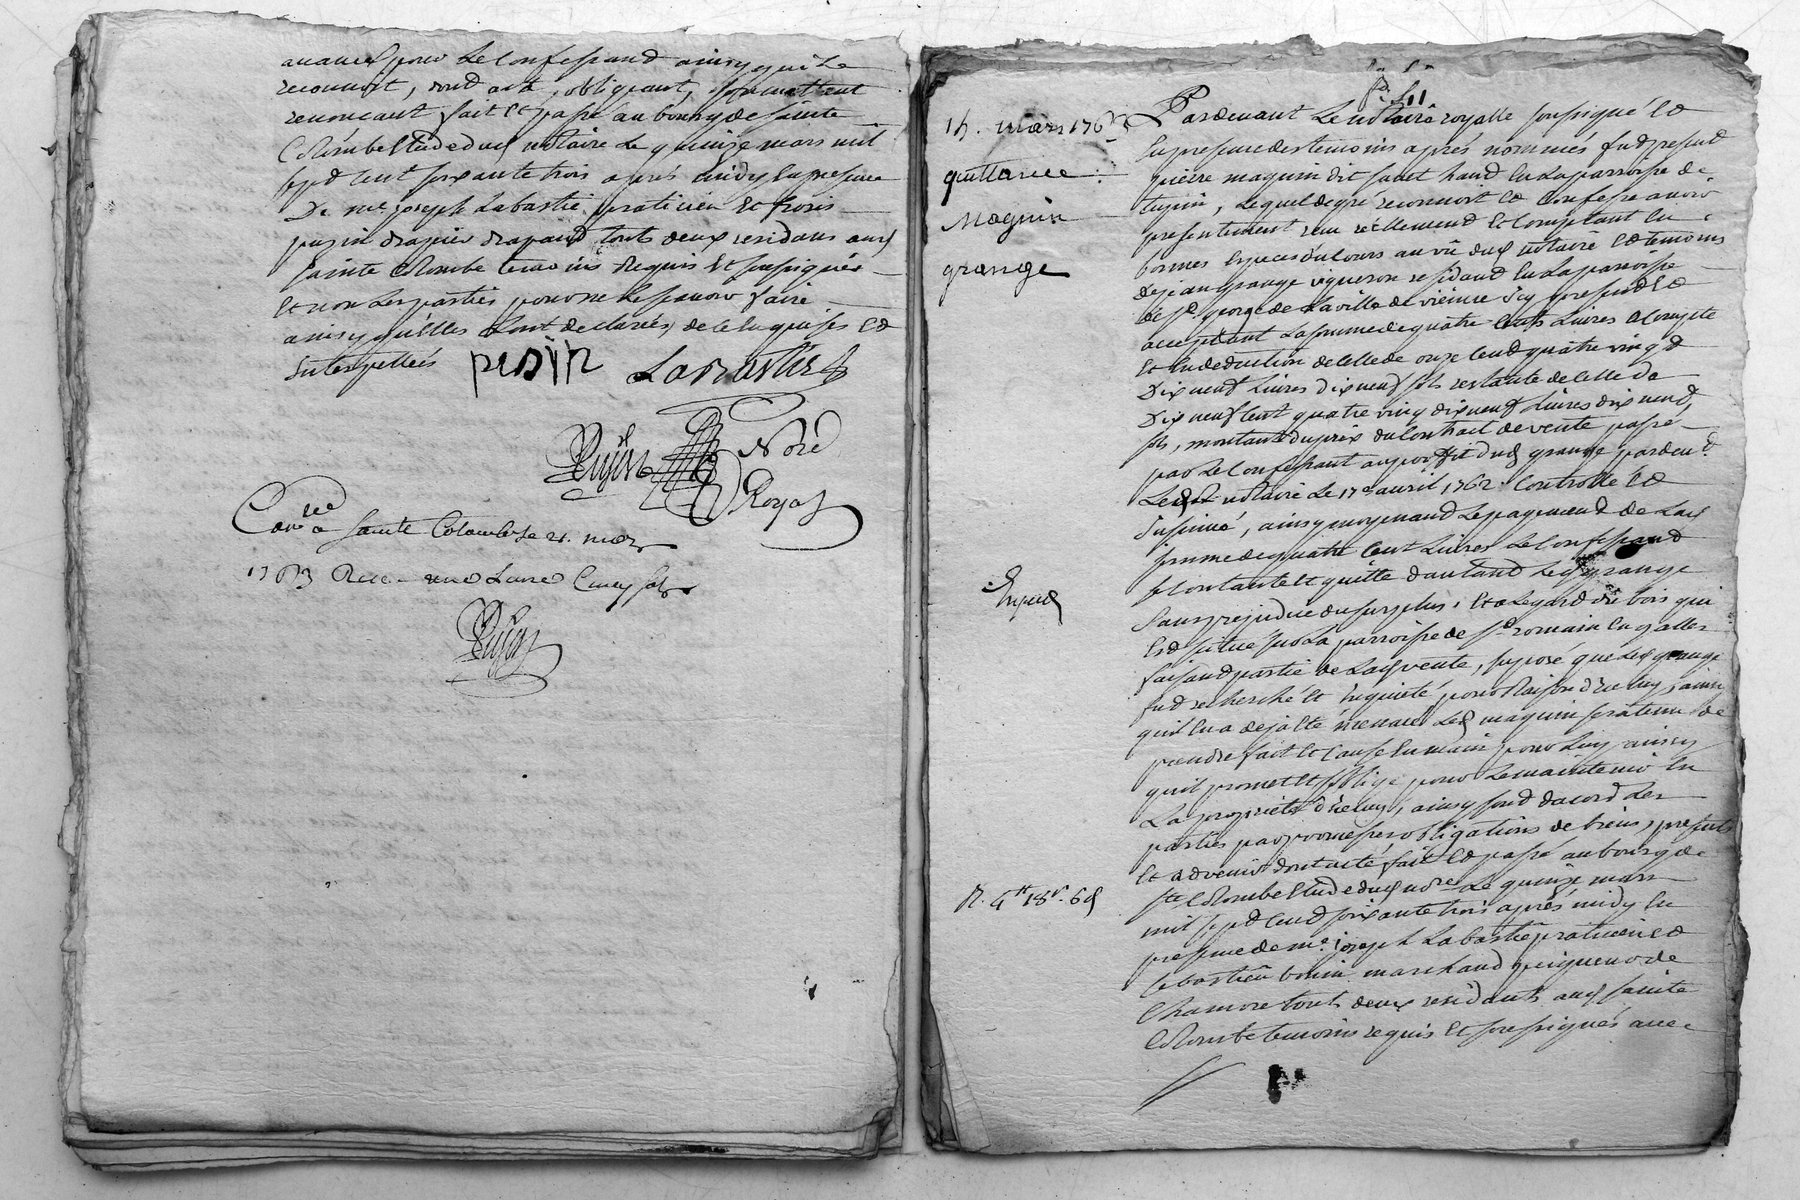 avances pour Le Confessand ainsy qui Le
reconnoit, dont acte, obligeant, soumettant
renoncant fait et passé au bourg de sainte
Colombe Etude dud notaire Le quinze mars mil
sept cent soixante trois après midy En presence
De me. joseph Labastie praticien et
puzin drapier drapand touts deux residans aud
sainte Colombe temoins Requis et soussignés
Et non Les parties pour ne Le scavoir faire
ainsy qu'elles L'ont declarés de ce Enquises et
Interpellés pusin Labastie
Pujin Nore
Royal
Conrlee a sainte Colombe Le 21. mars
1763 Reçu une Livre Cinq sols
Pujin
15. mars 1763
quittance
Magnin
grange
Pardevant Le notaire royalle soussigné et
En presence des temoins après nommés fut present
pierre maguin dit saint hand En La parroisse de
tupin, Lequel de gré reconnoit et Confesse avoir
presentement reçu réellement et Comptant En
bonnes Especes du Cours au vû dud notaire et temoins
de jean grange vigneron residand En La parroisse
de st. george de La ville de vienne Icy present et
acceptant La somme de quatre Cents Livres a Compte
et En deduction de Celle de onze Cent quatre vingt
Dix neuf Livres dix neuf sols restante de Celle de
Dix neuf Cent quatre vingt dix neuf Livres dix neuf
sols, montant du prix du Contrait de vente passé
par Le Confessant au proffit dud grange pardevt.
Led notaire Le 17e avril 1762 Controllé et
Insinué, ainsy moyenand Le payement de Lad
somme de quatre Cent Livres Le Confessand
se Contante et quitte d'autand Led grange
Sans prejudice du surplus, et a Legard du bois qui
Est situé sur La parroisse de st. romain En galles
faisand partie de Lad vente, supposé que Led grange
fut recherché et Inquieté pour Raison d'iceluy, ainsy
qu'il En a deja été menacé Led maguin sera tenu de
prendre fait et Cause En main pour Luy ainsy
qu'il promet et s'oblige pour Le maintenir En
La proprieté d'iceluy, ainsy sont d'acord Les
parties par promesses, obligations de biens, presents
Et advenir dont acte, fait et passé au bourg de
ste Colombe Etude dud notre Le quinze mars
mil sept cent soixante trois après midy En
presence de me. joseph Labastie praticien et
sebastien bonin marchand peigneur de
Chanvre touts deux residants aud sainte
Colombe temoins requis Et soussignés avec
R. 4tt 18s. 6d